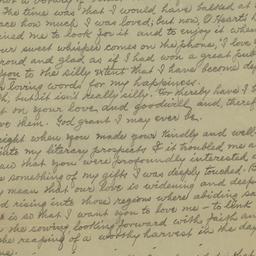 The time was that I would have balked at
how much I was loved; but now, O Heart!
me to look for it and to enjoy it when
sweet whisper comes on the phone, "I love
proud and glad as if I had won a great
you to the silly extent that I have become
loving words for my happiness.
but it isn't really silly. For thereby have I
on your love and goodwill and,
them. God grant I may ever be.
night when you made your kindly and
my literary prospects it troubled me
said that you were profoundly interested
something of my gifts I was deeply touched.
mean that our love is widening and
rising into those regions where abiding
is so that I want you to love me - to link
the sowing looking forward with faith and
the reaping of a worthy harvest in the